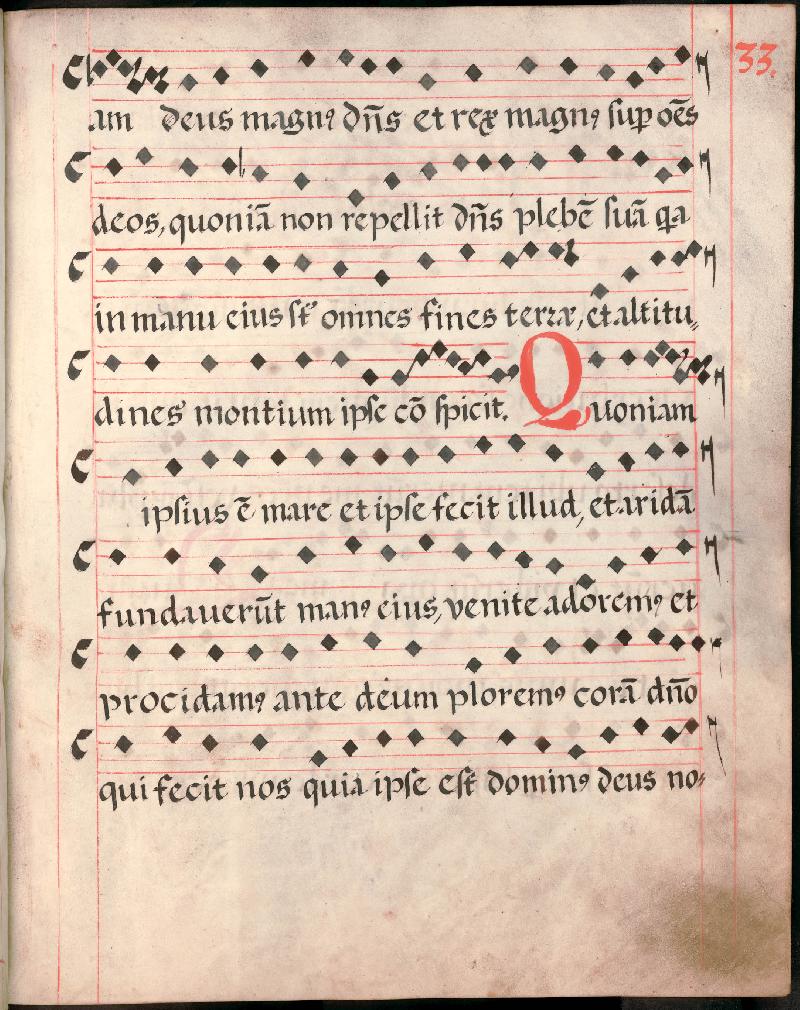 33.
am deus magnꝰ dn̄s et rex magnꝰ sup oēs
deos, quoniā non repellit dn̄s plebē suā qa
in manu eius st̄ omnes fines terræ, et altitu„
dines montium ipse cō spicit. Quoniam
ipsius ē mare et ipse fecit illud, et aridā
fundauerūt manꝰ eius, venite adoremꝰ et
procidamꝰ ante deum ploremꝰ corā dn̄o
qui fecit nos quia ipse est dominꝰ deus no„